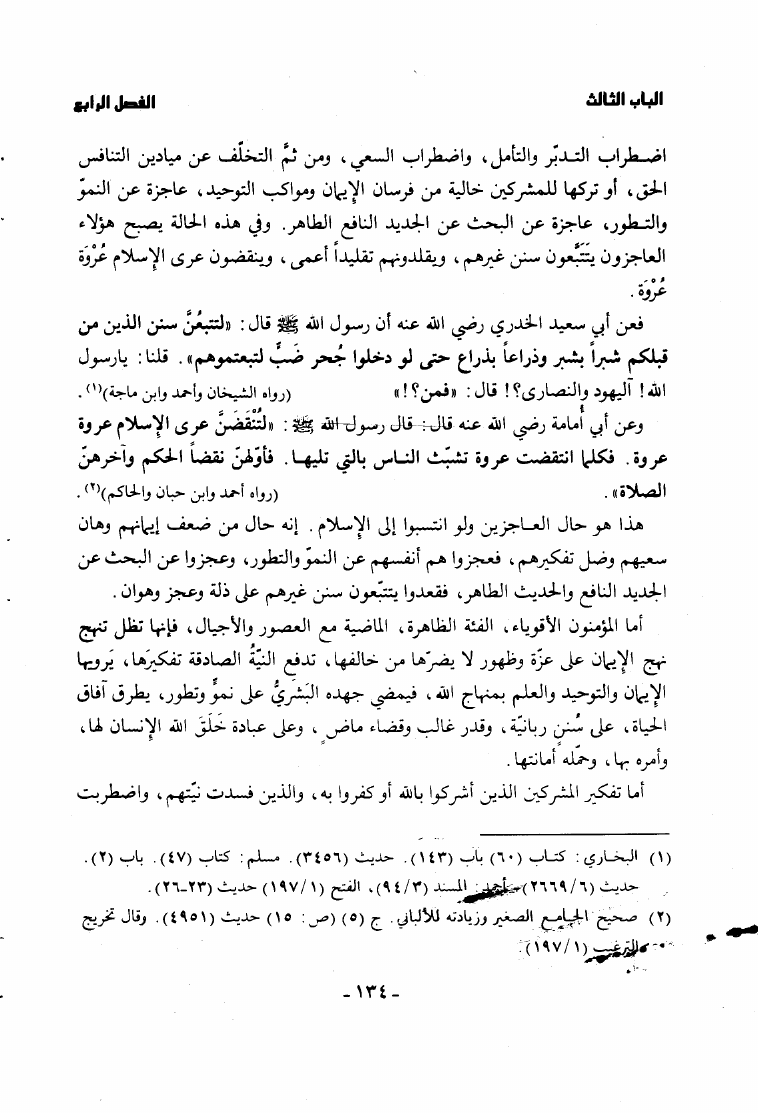 الباب الثالث
الفصل الرابع
اضطراب التدبّر والتأمل، واضطراب السعي، ومن ثمَّ التخلّف عن ميادين التنافس
الحق، أو تركها للمشركين خالية من فرسان الإيمان ومواكب التوحيد، عاجزة عن النموّ
والتطور، عاجزة عن البحث عن الجديد النافع الطاهر. وفي هذه الحالة يصبح هؤلاء
العاجزون يتَتَبَّعون سنن غيرهم، ويقلدونهم تقليداً أعمى، وينقضون عرى الإسلام عُرْوَة
عُرْوَة.
فعن أبي سعيد الخدري رضي الله عنه أن رسول الله ﷺ قال: «لتتبعُنَّ سنن الذين من
قبلكم شبراً بشبر وذراعاً بذراع حتى لو دخلوا جُحر ضَبٍّ لتبعتموهم». قلنا: يارسول
الله! آليهود والنصارى؟! قال: «فمن؟!» (رواه الشيخان وأحمد وابن ماجة)(١).
وعن أبي أُمامة رضي الله عنه قال: قال رسول الله ﷺ: «لتُنْقَضَنَّ عرى الإسلام عروة
عروة. فكلما انتقضت عروة تشبّث الناس بالتي تليها. فأوّلهنّ نقضاً الحكم وآخرهنّ
الصلاة». (رواه أحمد وابن حبان والحاكم)(٢).
هذا هو حال العاجزين ولو انتسبوا إلى الإسلام. إنه حال من ضعف إيمانهم وهان
سعيهم وضل تفكيرهم، فعجزوا هم أنفسهم عن النموّ والتطور، وعجزوا عن البحث عن
الجديد النافع والحديث الطاهر، فقعدوا يتتبّعون سنن غيرهم على ذلة وعجز وهوان.
أما المؤمنون الأقوياء، الفئة الظاهرة، الماضية مع العصور والأجيال، فإنها تظل تنهج
نهج الإيمان على عزّة وظهور لا يضرّها من خالفها، تدفع النيّةُ الصادقة تفكيرَها، يَرويها
الإيمان والتوحيد والعلم بمنهاج الله، فيمضي جهده البَشَريُّ على نموٍّ وتطور، يطرق آفاق
الحياة، على سُننٍ ربانيّة، وقدر غالب وقضاء ماضٍ، وعلى عبادة خَلَقَ الله الإنسان لها،
وأمره بها، وحمّله أمانتها.
أما تفكير المشركين الذين أشركوا بالله أو كفروا به، والذين فسدت نيّتهم، واضطربت
(١) البخاري: كتاب (٦٠) باب (١٤٣). حديث (٣٤٥٦). مسلم: كتاب (٤٧). باب (٢).
حديث (٢٦٦٩/٦) أحمد: المسند (٩٤/٣)، الفتح (١٩٧/١) حديث (٢٣-٢٦).
(٢) صحيح الجامع الصغير وزيادته للألباني. ج (٥) (ص: ١٥) حديث (٤٩٥١). وقال تخريج
الترغيب (١٩٧/١).
- ١٣٤ -